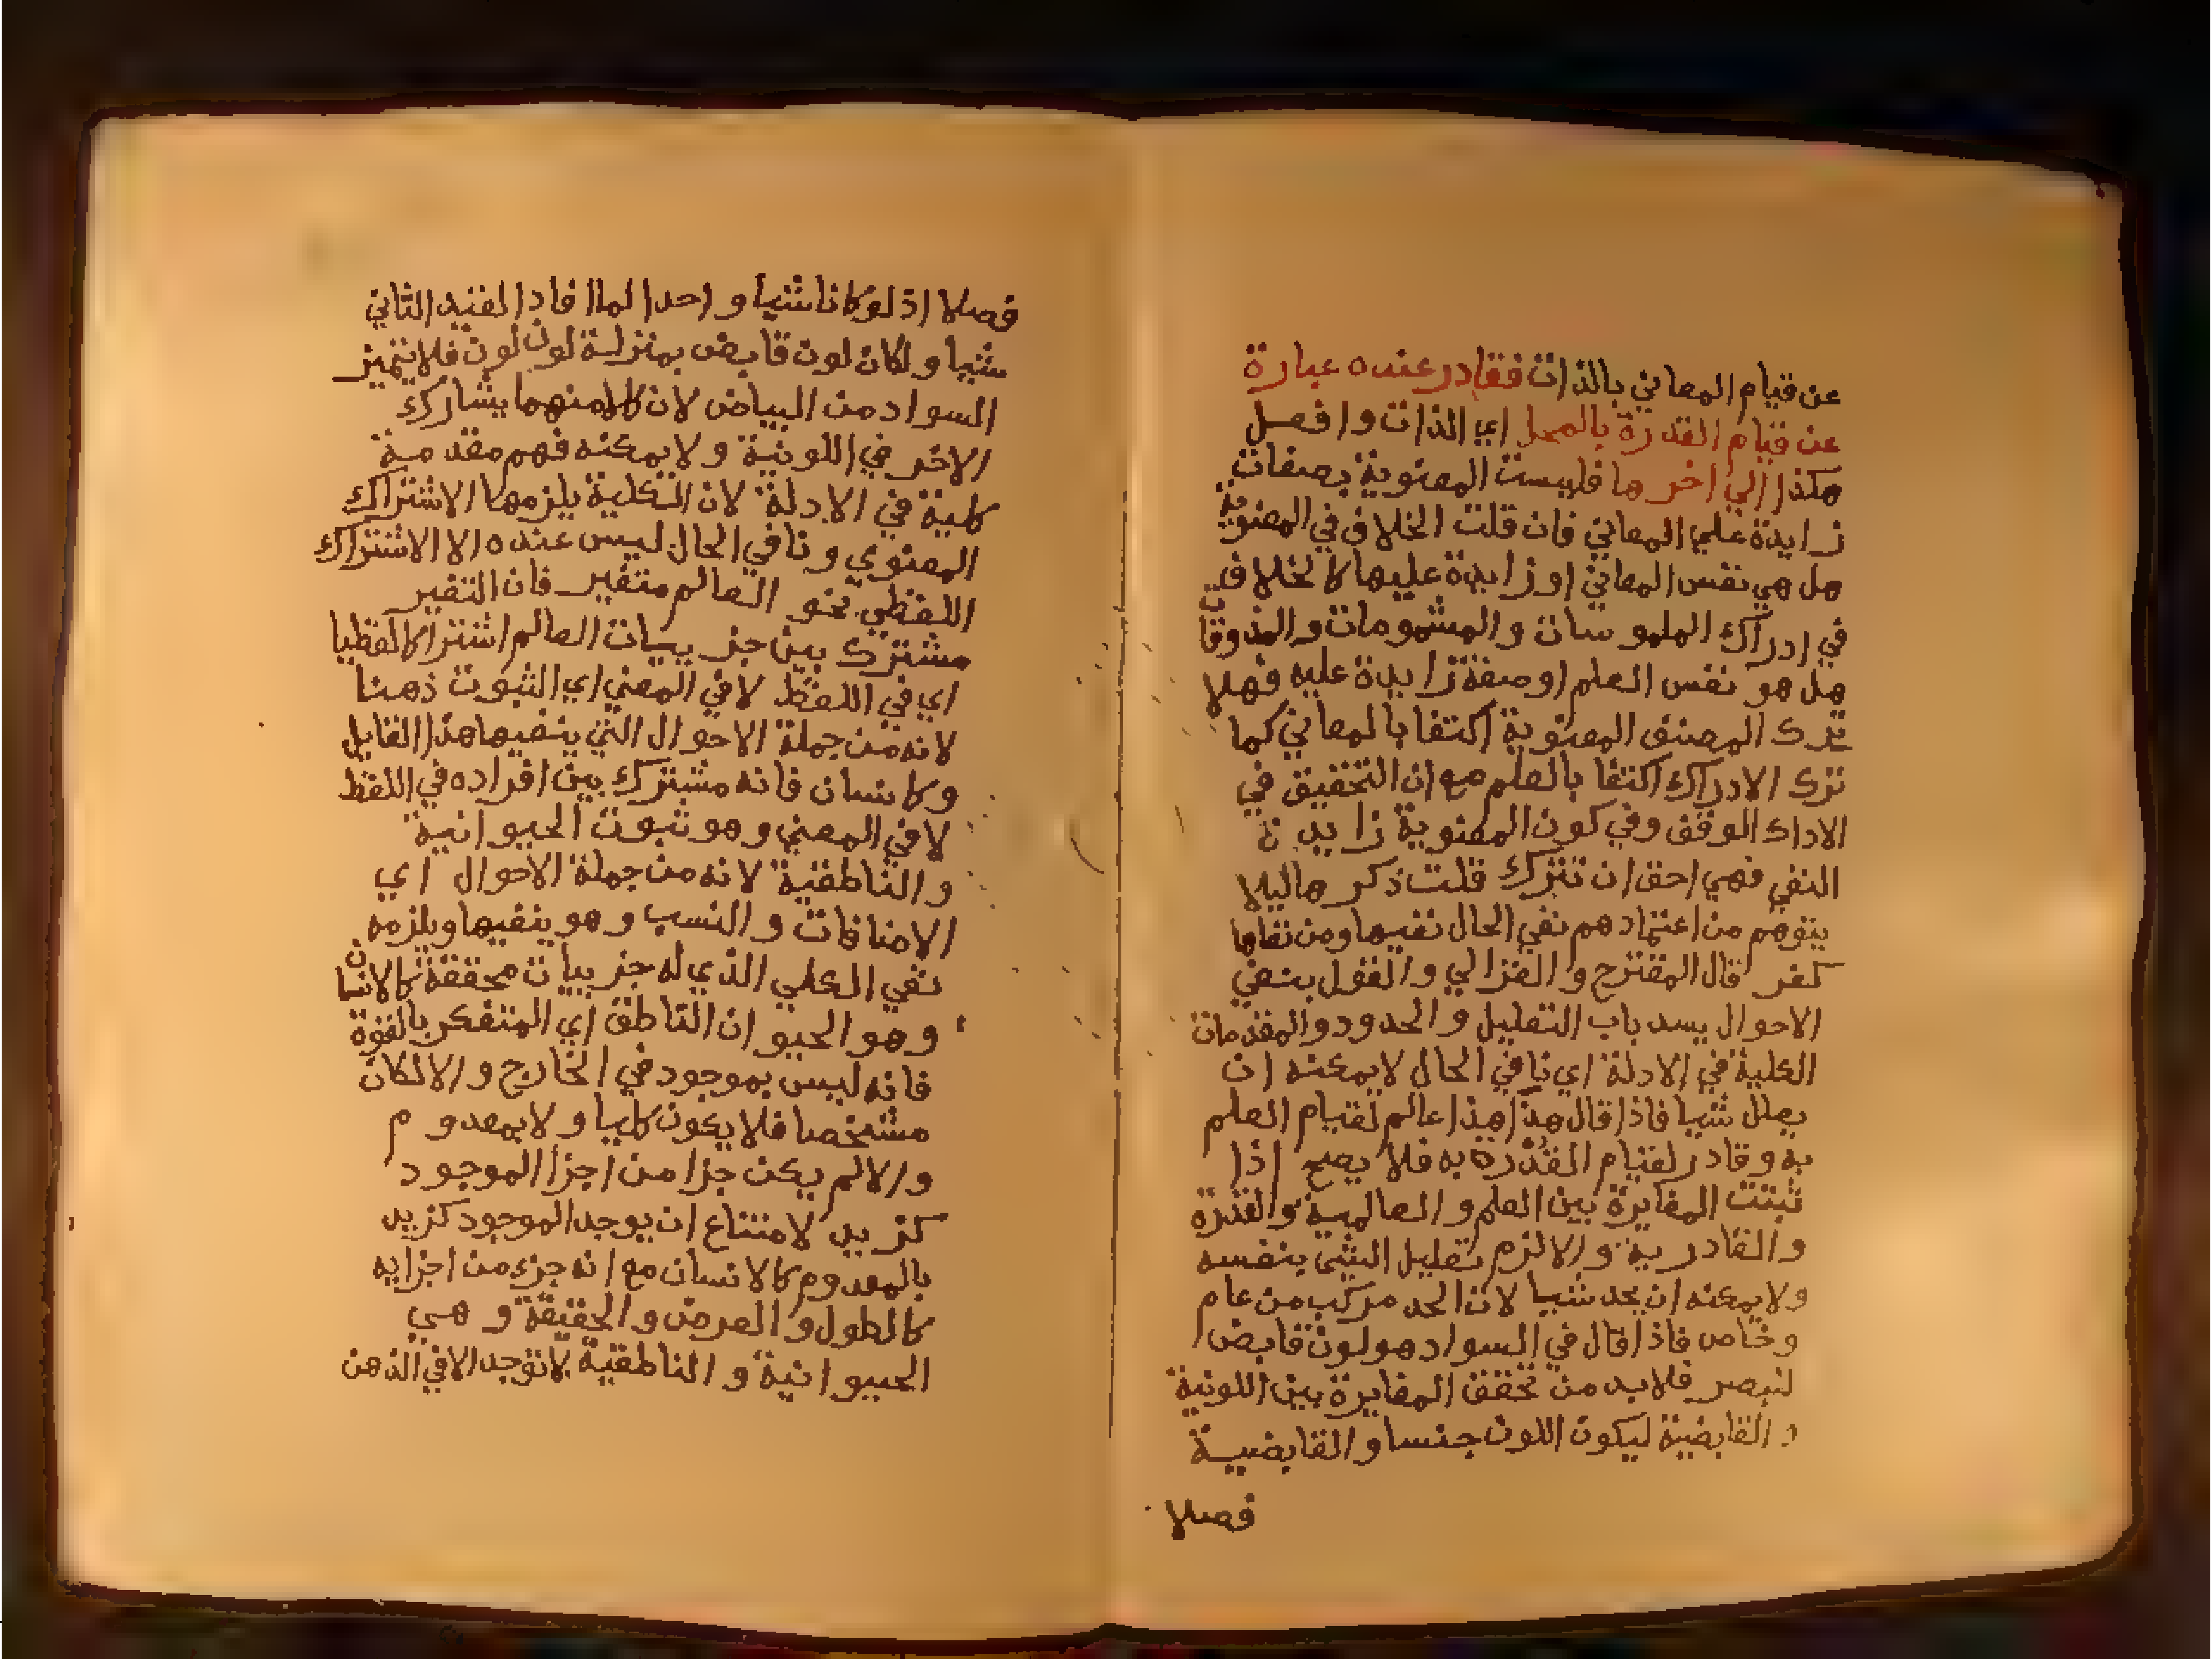 عن قيام المعاني بالذات فقادر عنده عبارة
عن قيام القدرة بالمحل اي الذات وافعل
هكذا الي اخرها فليست المعنوية بصفات
زايدة علي المعاني فان قلت الخلاف في المعنوية
هل هي نفس المعاني او زايدة عليها كالخلاف
في ادراك الملموسات والمشمومات والمذوقات
هل هو نفس العلم او صفة زايدة عليه فهلا
ترك المصنف المعنوية اكتفا بالمعاني كما
ترك الادراك اكتفا بالعلم مع ان التحقيق في
الاداك الوقف وفي كون المعنوية زايدة
النفي فهي احق ان تترك قلت ذكرها ليلا
يتوهم من اعتمادهم نفي الحال نفيها ومن نفاها
كفر قال المقترح والغزالي والقول بنفي
الاحوال يسد باب التعليل والحدود والمقدمات
الكلية في الادلة اي نافي الحال لا يمكنه ان
يعلل شيا فاذا قال هذا هذا عالم لقيام العلم
به وقادر لقيام القدرة به فلا يصح اذا
ثبتت المغايرة بين العلم والعالمية والقدرة
والقادرية والا لزم تعليل الشي بنفسه
ولا يمكنه ان يحد شيا لان الحد مركب من عام
وخاص فاذا قال في السواد هو لون قابض
للبصر فلا بد من تحقق المغايرة بين اللونية
والقابضية ليكون اللون جنسا والقابضية
فصلا
فصلا اذ لو كانا شيا واحدا لما افاد القيد الثاني
شيا ولكان لون قابض بمنزلة لون لون فلا يتميز
السواد من البياض لان كلا منهما يشارك
الاخر في اللونية ولا يمكنه فهم مقدمة
كلية في الادلة لان الكلية يلزمها الاشتراك
المعنوي ونافي الحال ليس عنده الا الاشتراك
اللفظي نحو العالم متغير فان التغير
مشترك بين جزييات العالم اشتراكا لفظيا
اي في اللفظ لا في المعني اي الثبوت ذهنا
لانه من جملة الاحوال التي ينفيها هذا القايل
وكانسان فانه مشترك بين افراده في اللفظ
لا في المعني وهو ثبوت الحيوانية
والناطقية لانه من جملة الاحوال اي
الاضافات والنسب وهو ينفيها ويلزمه
نفي الكلي الذي له جزييات محققة كالانسان
وهو الحيوان الناطق اي المتفكر بالقوة
فانه ليس بموجود في الخارج والا لكان
مشخصا فلا يكون كليا ولا بمعدوم
والا لم يكن جزا من اجزا الموجود
كزيد لامتناع ان يوجد الموجود كزيد
بالمعدوم كالانسان مع انه جزء من اجزايه
كالطول والعرض والحقيقة وهي
الحيوانية والناطقية لا توجد الا في الذهن